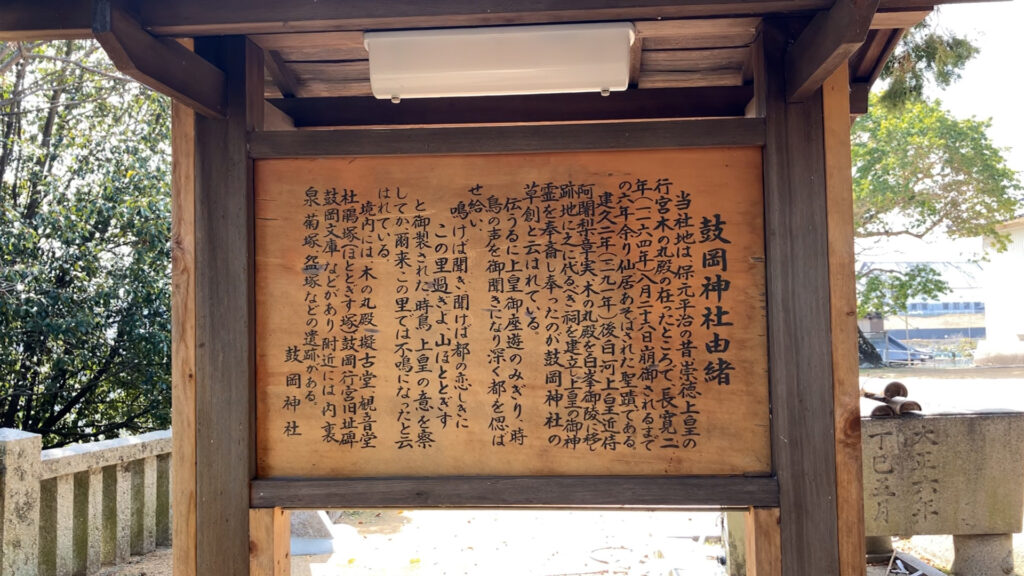 鼓岡神社由緒
当社地は、保元平治の昔崇徳上皇の
行宮木の丸殿の在ったところで、長寛二
年(一一六四年)八月二十六日崩御されるまで
の六年余り仙居あそばされた聖蹟である。
建久二年(一一九一年)後白河上皇近侍
阿闍梨章実、木の丸殿を白峯御陵に移し
跡地に之に代るべき祠を建立し上皇の御神
霊を奉斎し奉ったのが鼓岡神社の
草創と云はれている。
伝うるに上皇御座遊のみぎり、時
鳥の声を御聞きになり深く都を偲ば
せ給い
鳴けば聞き聞けば都の恋しきに
この里過ぎよ、山ほととぎす
と御製された、時鳥、上皇の意を察
してか爾来この里では不鳴になったと云
はれている。
境内には、木の丸殿、擬古堂、観音堂
杜鵑塚(ほととぎす塚)鼓岡行宮旧址碑
鼓岡文庫などがあり附近には、内裏
泉、菊塚、盌塚などの遺跡がある。
鼓岡神社
大正六年
丁巳五月